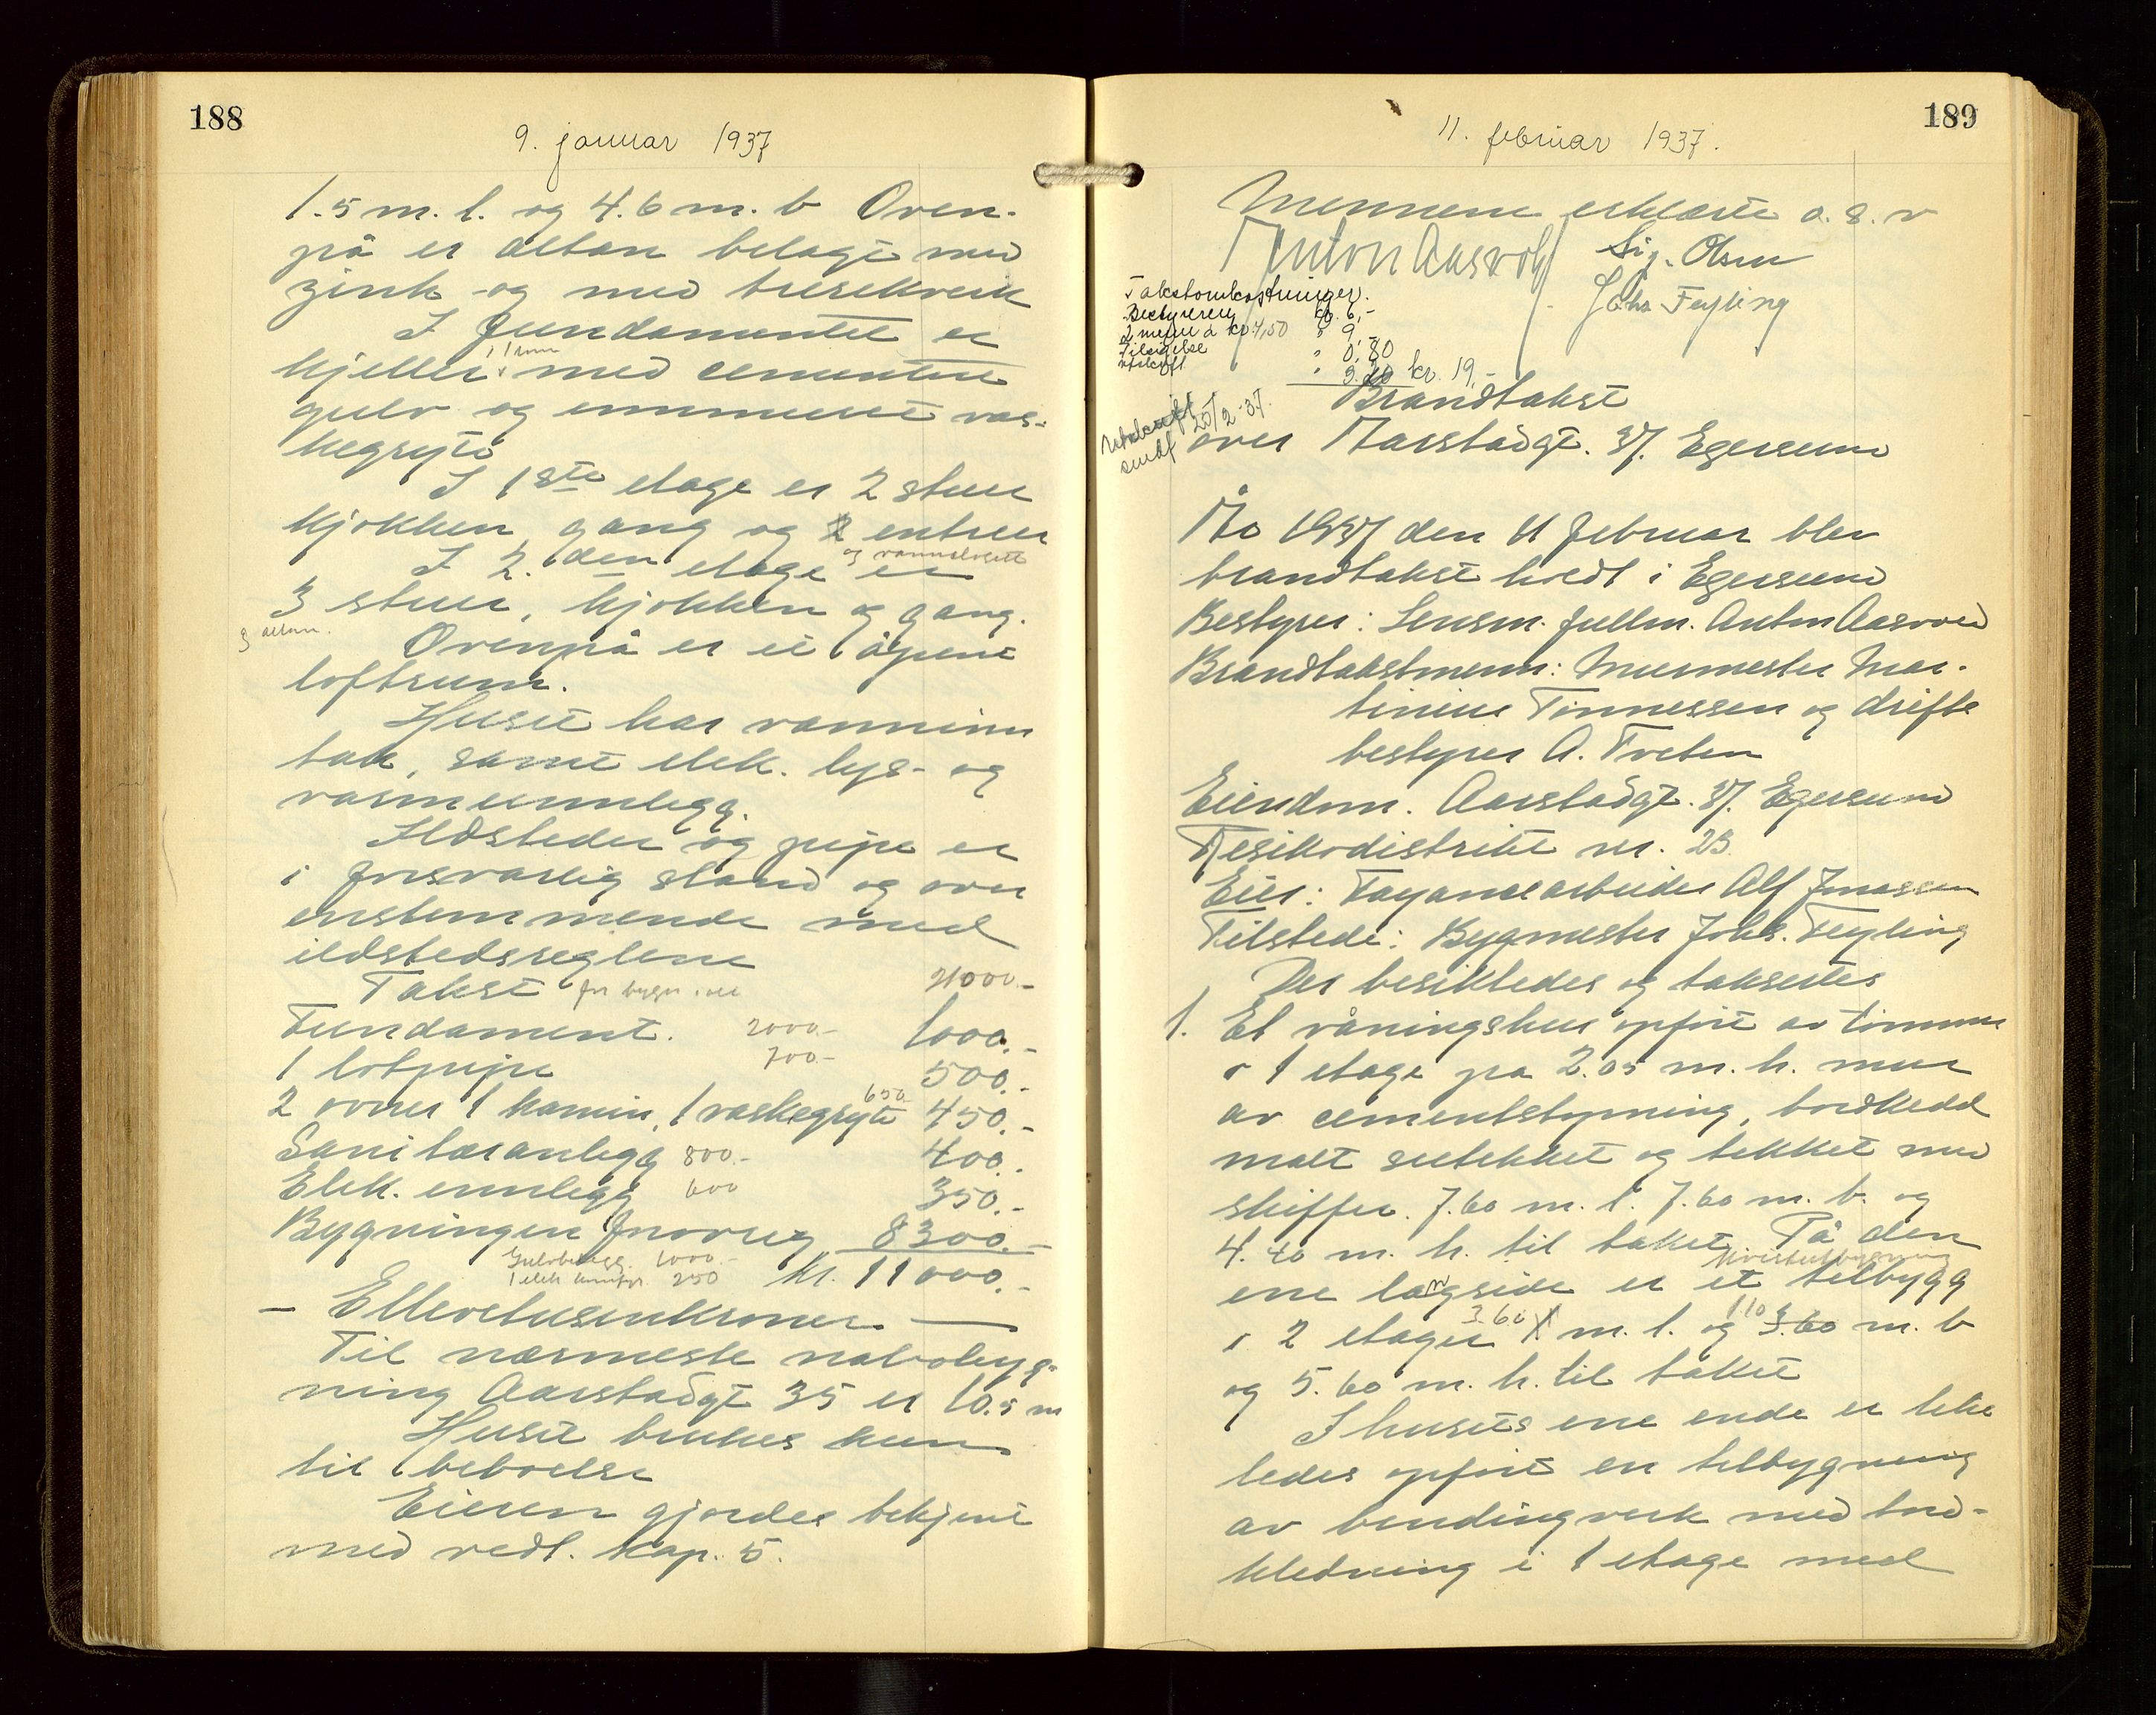 188
9. januar 1937
1.5 m. l. og 4.6 m. b Oven-
på er altan belagt med
zink og med trerekverk
I fundamentet er
kjeller i 1 rum med cementert
gulv og innmuret vas-
kegryte
I 1ste etage er 2 stuer
kjøkken, gang og entreer
og vannklosett
I 2. den etage er
3 stuer, kjøkken og gang.
og altan.
Ovenpå er et åpent
loftsrum.
Huset har vanninn
tak, samt elek. lys- og
varmeinnlegg.
Ildsteder og pipe er
i forsvarlig stand og over
enstemmende med
ildstedsreglene
Takst for bygn. 21000.-
Fundament. 2000.- 1000.-
1 løtpipe 700.- 500.-
2 ovner 1 kamin, 1 vaskegryte 650 450.-
Sanitæranlegg 800.- 400.-
Elek. innlegg 600 350.-
Bygningen forøvrig 8300.-
Gulvbelegg. 1000.-
1 elek komfyr 250 kr. 11000.-
— Ellevetusenkroner. —
Til nærmeste nabobyg-
ning Aarstadgt 35 er 10.5 m
Huset brukes kun
til beboelse
Eieren gjordes bekjent
med vedt. kap. 5.
189
11. februar 1937.
Mennene erklærte o. s. v
Anton Aasvold Sig. Olsen
Johs Feyling
Takstomkostninger.
Bestyreren kr. 6,-
2 menn à kr. 4,50 " 9,-
Tilsigelse " 0,80
Utskrift " 3.20 kr. 19,-
Utskrift
sendt 25/2-37.
Brandtakst
over Aarstadgt. 37. Egersund
År 1937 den 11 februar blev
brandtakst holdt i Egersund
Bestyrer: Lensm. fullm. Anton Aasvold
Brandtakstmenn: Murmester Mar-
tinius Tønnessen og drifts
bestyrer A. Tveten
Eiendom. Aarstadgt. 37. Egersund
Risikodistrikt nr. 23.
Eier: Fayancearbeider Alf Jonassen
Tilstede: Bygmester Johs. Feyling
Der besiktedes og taksertes
1. Et våningshus opført av tømmer
i 1 etage på 2.05 m. h. mur
av cementstøpning, bordkledd
malt sutekket og tekket med
skiffer. 7.60 m. l. 7.60 m. b. og
4.40 m. h. til taket På den
kvistutbygning
ene langside er et tilbygg
i 2 etager 3.60 m. l. og 1.10 3.60 m. b
og 5.60 m. h. til taket
I husets ene ende er like
ledes opført en tilbygning
av bindingverk med bord-
kledning i 1 etage med